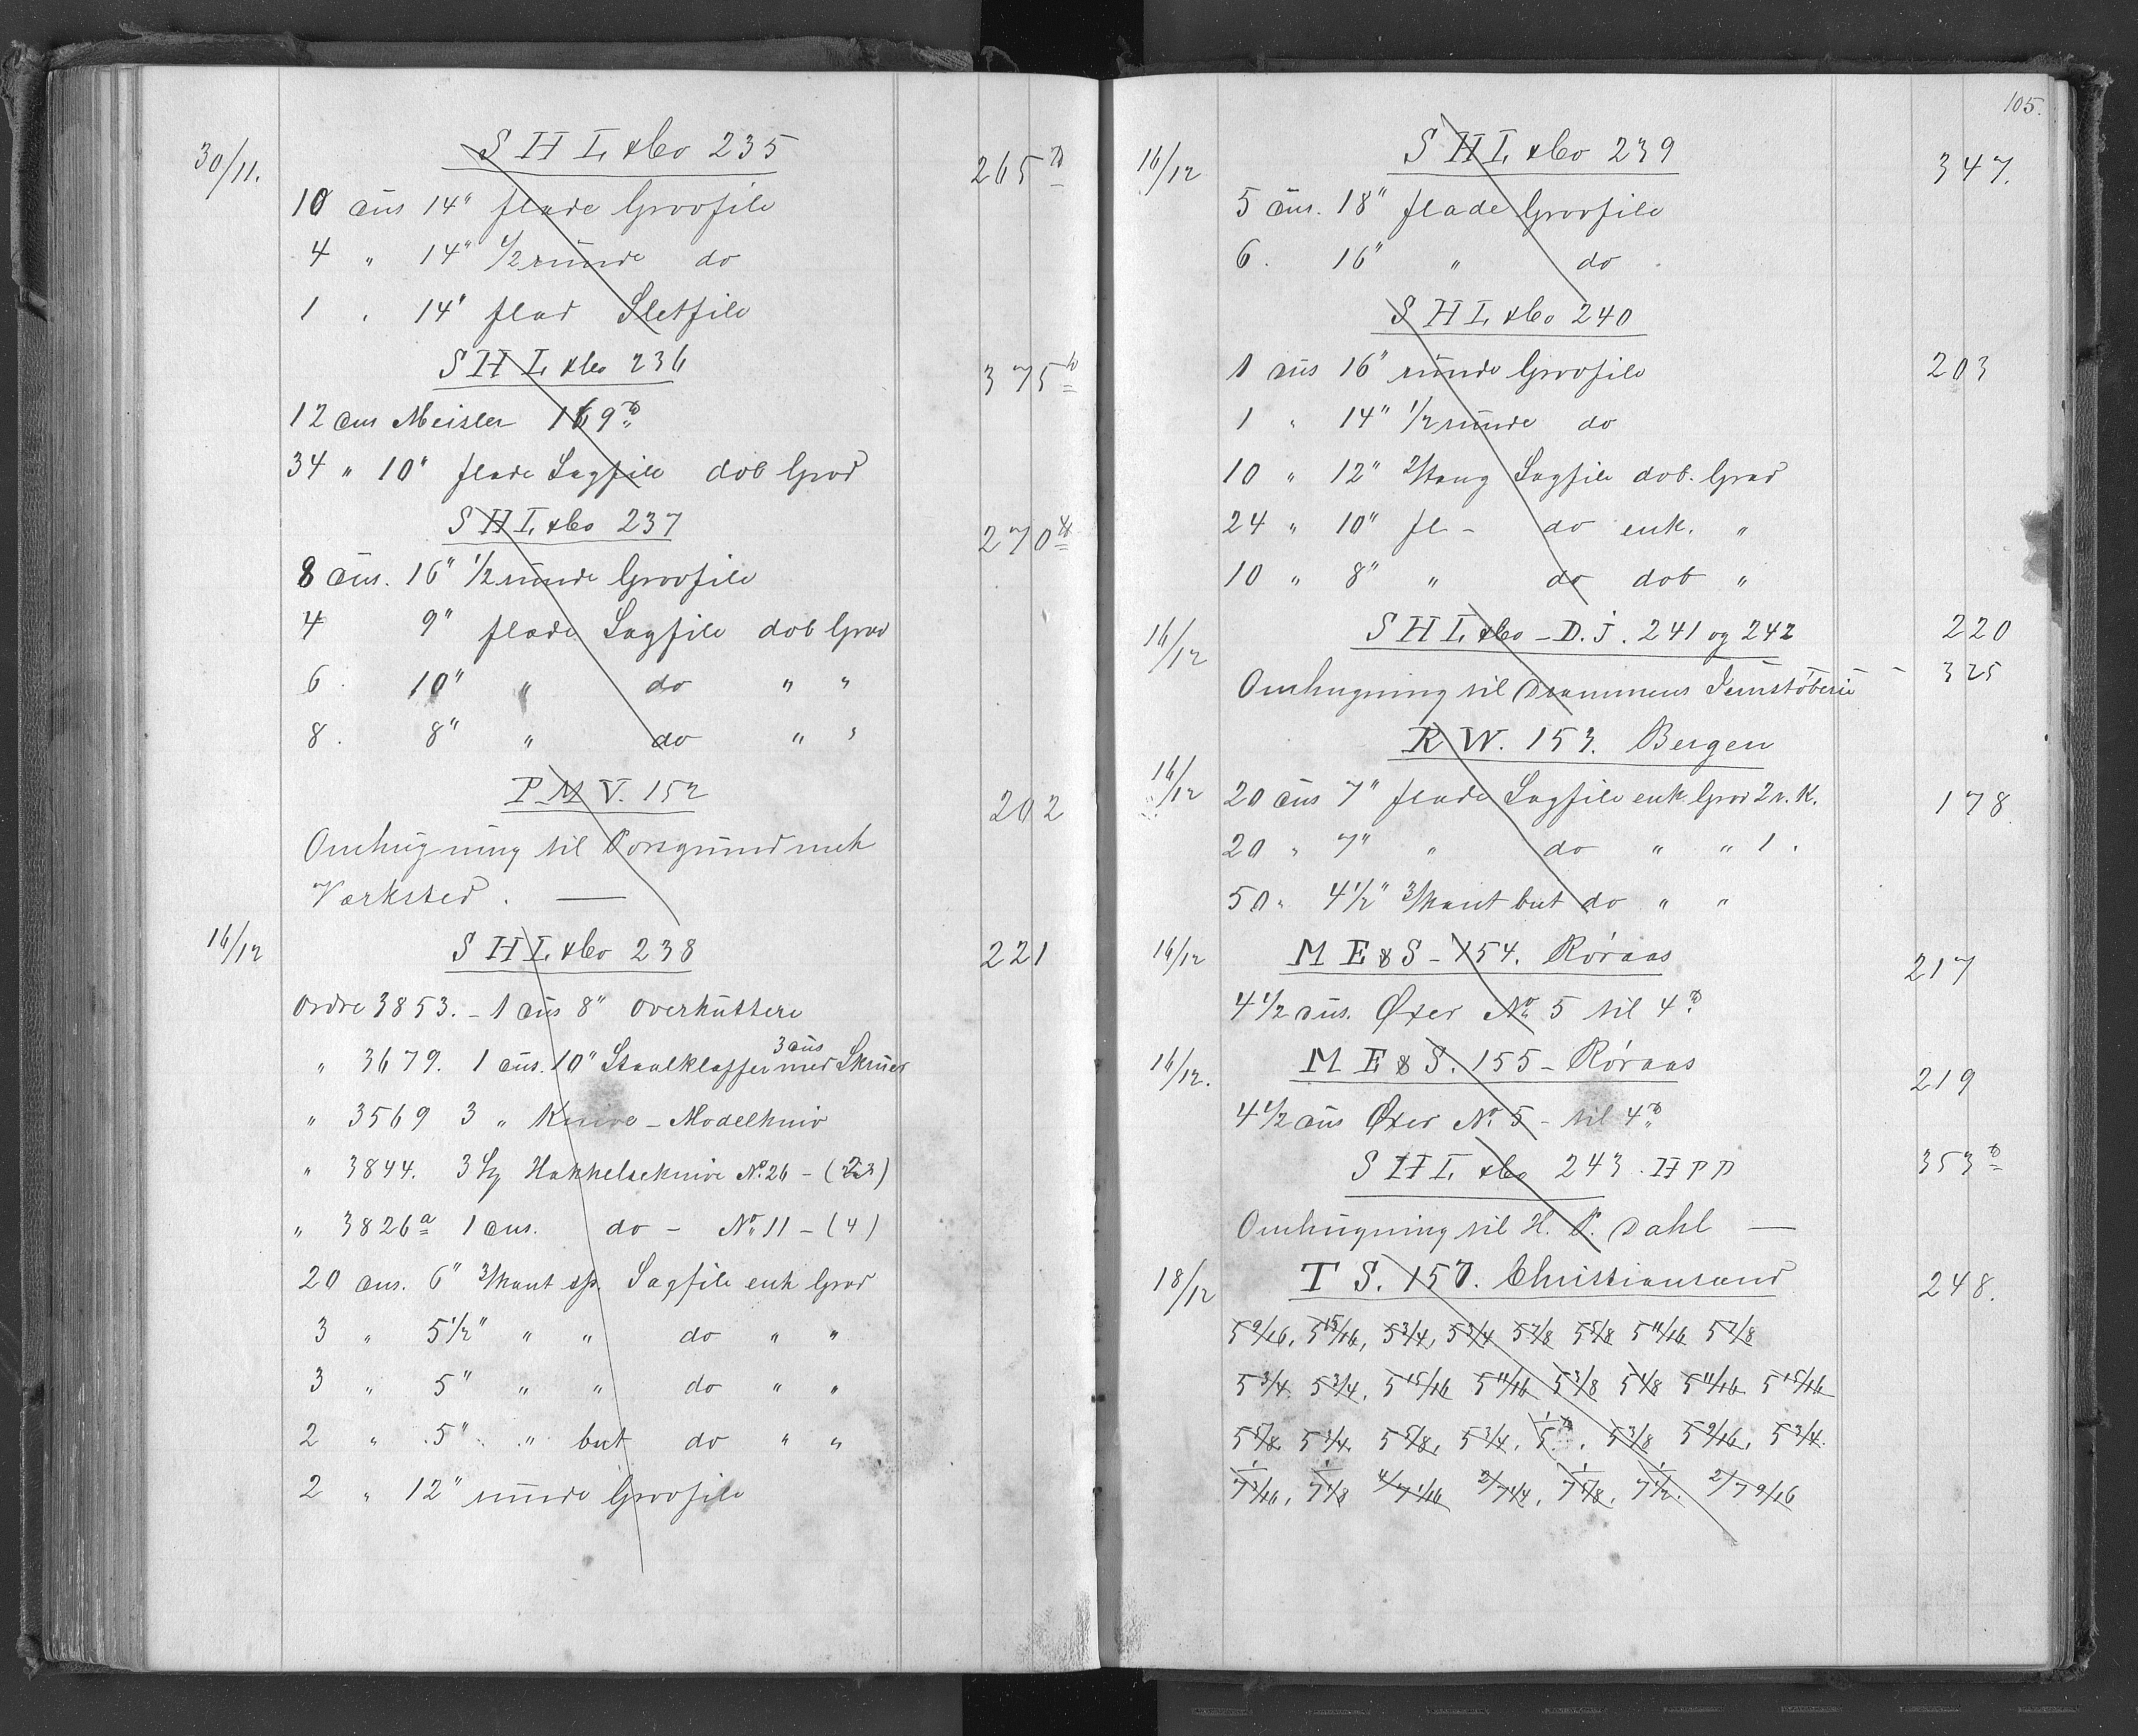 30/11. S H L & Co 235 265 ₶
10 dus 14" flade Grovfile
4 " 14" 1/2 runde do
1 " 14" flad Sletfile
S H L & Co 236 375 ₶
12 dus Meisler 169 ₶
34 " 10" flade Sagfile dob Grad
S H L & Co 237 270 ₶
8 dus. 16" 1/2 runde Grovfile
4 9" flade Sagfile dob Grad
6 . 10" " do " "
8 . 8" " do " "
P M V. 152 202
Omhugning til Porsgrund mek
Værksted . —
16/12 S H L & Co 238 221
Ordre 3853. - 1 dus 8" Overkuttere
3 dus
" 3679. 1 dus. 10" Staalklaffer med Skruer
" 3569 3 " Knive - Modelkniv
" 3844. 3 Hakkelseknive No. 26 - (23)
" 3826a 1 dus. do - No 11 - (4)
20 dus. 6" 3/kant sp. Sagfile enk Grad
3 " 5 1/2" " " do " "
3 " 5" " " do " "
2 " 5" " but do " "
2 " 12" runde Grovfile
105.
16/12 S H L & Co 239 347.
5 dus. 18" flade Grovfile
6 . 16" " do .
S H L & Co 240
1 dus 16" runde Grovfile 203
1 " 14" 1/2 runde do
10 " 12" Sagfile dob. Grad
24 " 10" fl - do enk. "
10 " 8" " do dob "
16/12 S H L & Co - D. J. 241 og 242 220
Omhugning til Drammens Jernstøberie - 325
R W. 153. Bergen
16/12 20 dus 7" flade Sagfile enk. Grad 2 r. K. 178
20 " 7" " do " " 1 .
50 " 4 1/2" 3/kant but do " "
16/12 M E & S - 154. Røraas 217
4 1/2 dus. Øxer No 5 til 4 ₶
16/12. M E & S. 155 - Røraas 219
4 1/2 dus Øxer No. 5 - til 4 ₶
S H L & Co 243 . H P D 353 ₶
Omhugning til H. P. Dahl —
18/12 T S. 157. Christiansand 248.
5 9/16, 5 15/16, 5 3/4, 5 3/4 5 7/8 5 5/8 5 11/16 5 7/8
5 3/4 5 3/4, 5 15/16 5 11/16 5 3/8 5 1/8 5 11/16 5 15/16
5 5/8 5 3/4 5 5/8, 5 3/4, 5 3/8 5 9/16, 5 3/4.
7 3/16, 7 1/8 4/7 1/16 2/7 1/4, 7 5/8, 7 1/2. 2/7 9/16